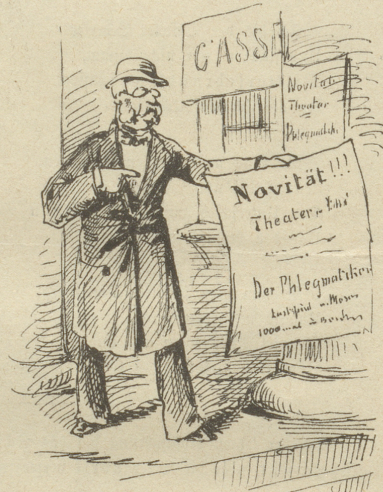 CASSE
Novität
Theater
Phlegmatik.
Novität!!!
Theater
Der Phlegmatiker
Lustspiel v. Moser
1000 mal in